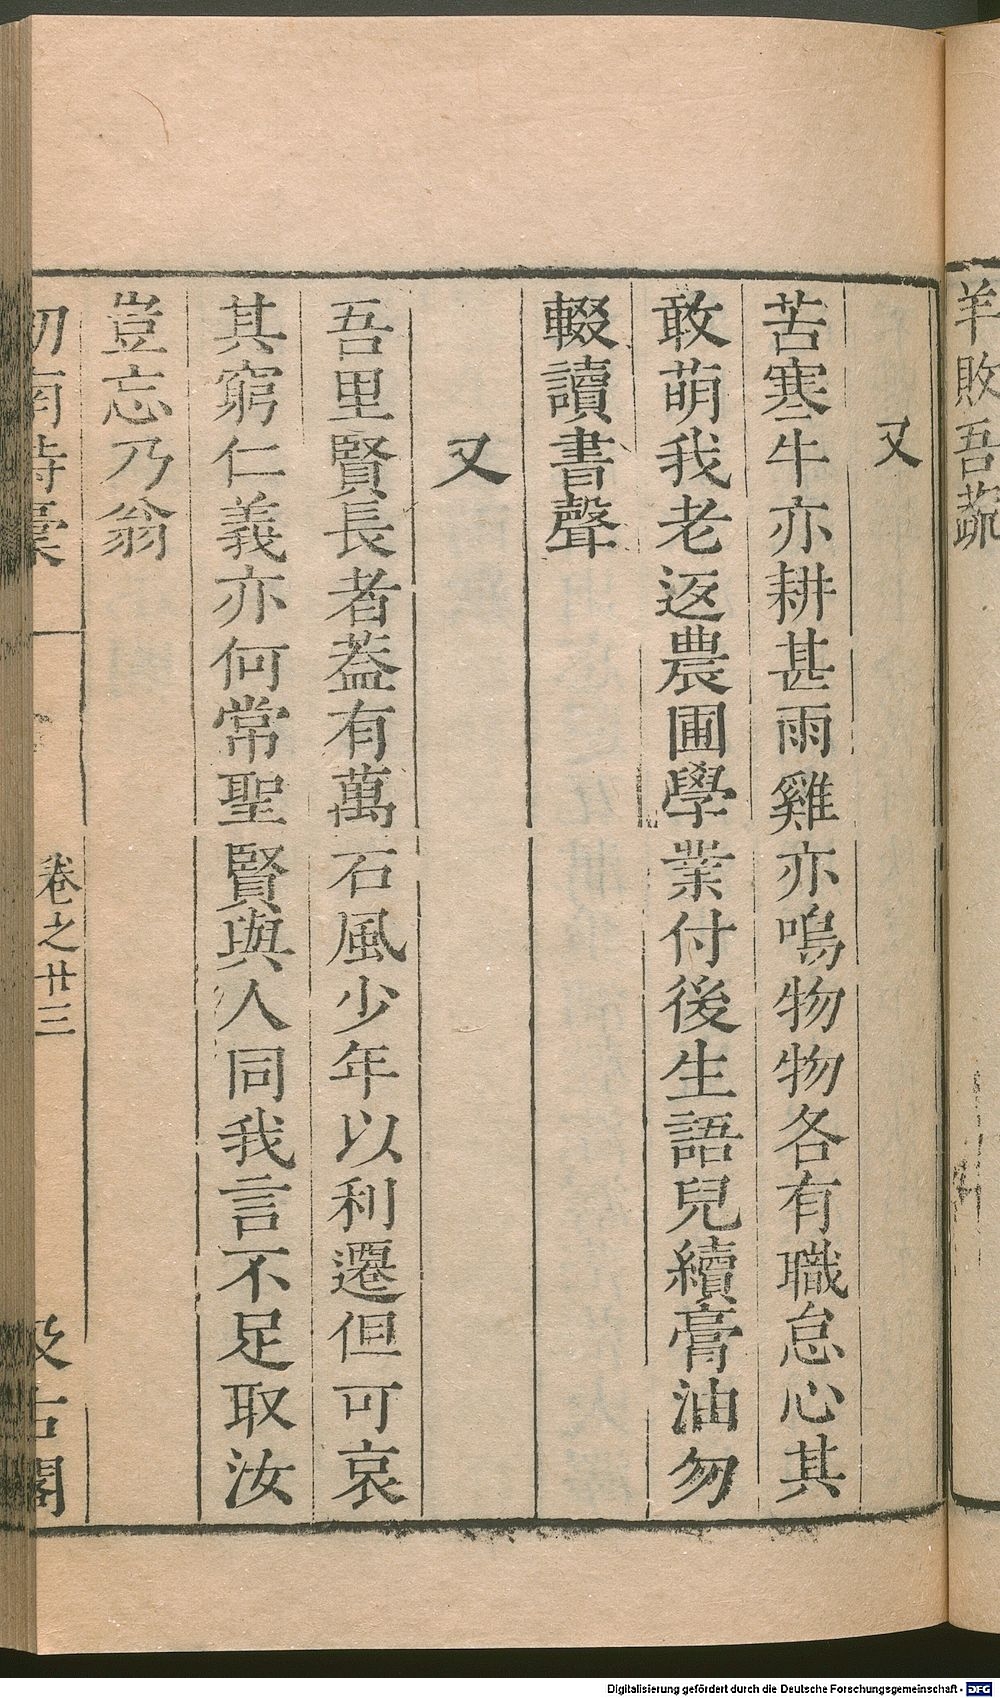 羊敗吾蔬
又
苦寒牛亦耕甚雨雞亦鳴物物各有職怠心其
敢萌我老返農圃學業付後生語兒續膏油勿
輟讀書聲
又
吾里賢長者蓋有萬石風少年以利遷但可哀
其窮仁義亦何常聖賢與人同我言不足取汝
豈忘乃翁
劒南詩稾
卷之廿三
汲古閣
Digitalisierung gefördert durch die Deutsche Forschungsgemeinschaft - DFG